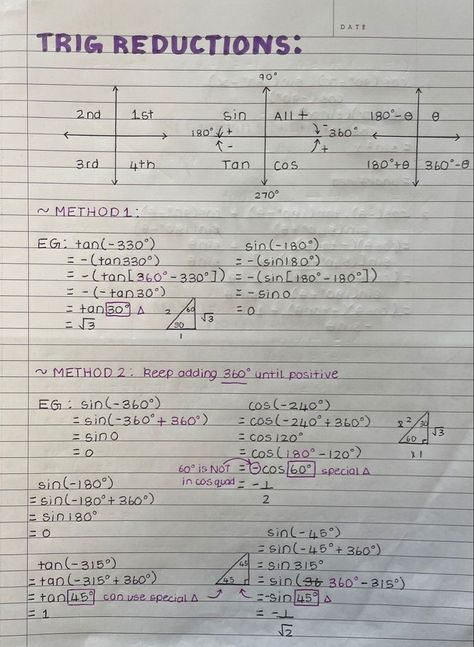 DATE
TRIG REDUCTIONS:
90°
2nd 1st
sin All +
180°-θ θ
180° + - 360°
- +
3rd 4th
Tan cos
180°+θ 360°-θ
270°
~ METHOD 1:
EG: tan(-330°)
= -(tan330°)
= -(tan[360°-330°])
= -(-tan30°)
= tan 30° Δ
= √3
2 60 √3
30
1
sin(-180°)
= -(sin180°)
= -(sin[180°-180°])
= -sin0
= 0
~ METHOD 2: Keep adding 360° until positive
EG: sin(-360°)
= sin(-360°+360°)
= sin0
= 0
cos(-240°)
= cos(-240°+360°)
= cos120°
= cos(180°-120°)
= -cos 60° special Δ
= -1
2
60° is NOT
in cos quad
2 30 √3
60
1
sin(-180°)
= sin(-180°+360°)
= sin180°
= 0
tan(-315°)
= tan(-315°+360°)
= tan 45° can use special Δ
= 1
45
45
sin(-45°)
= sin(-45°+360°)
= sin315°
= sin(36 360°-315°)
= -sin 45° Δ
= -1
√2